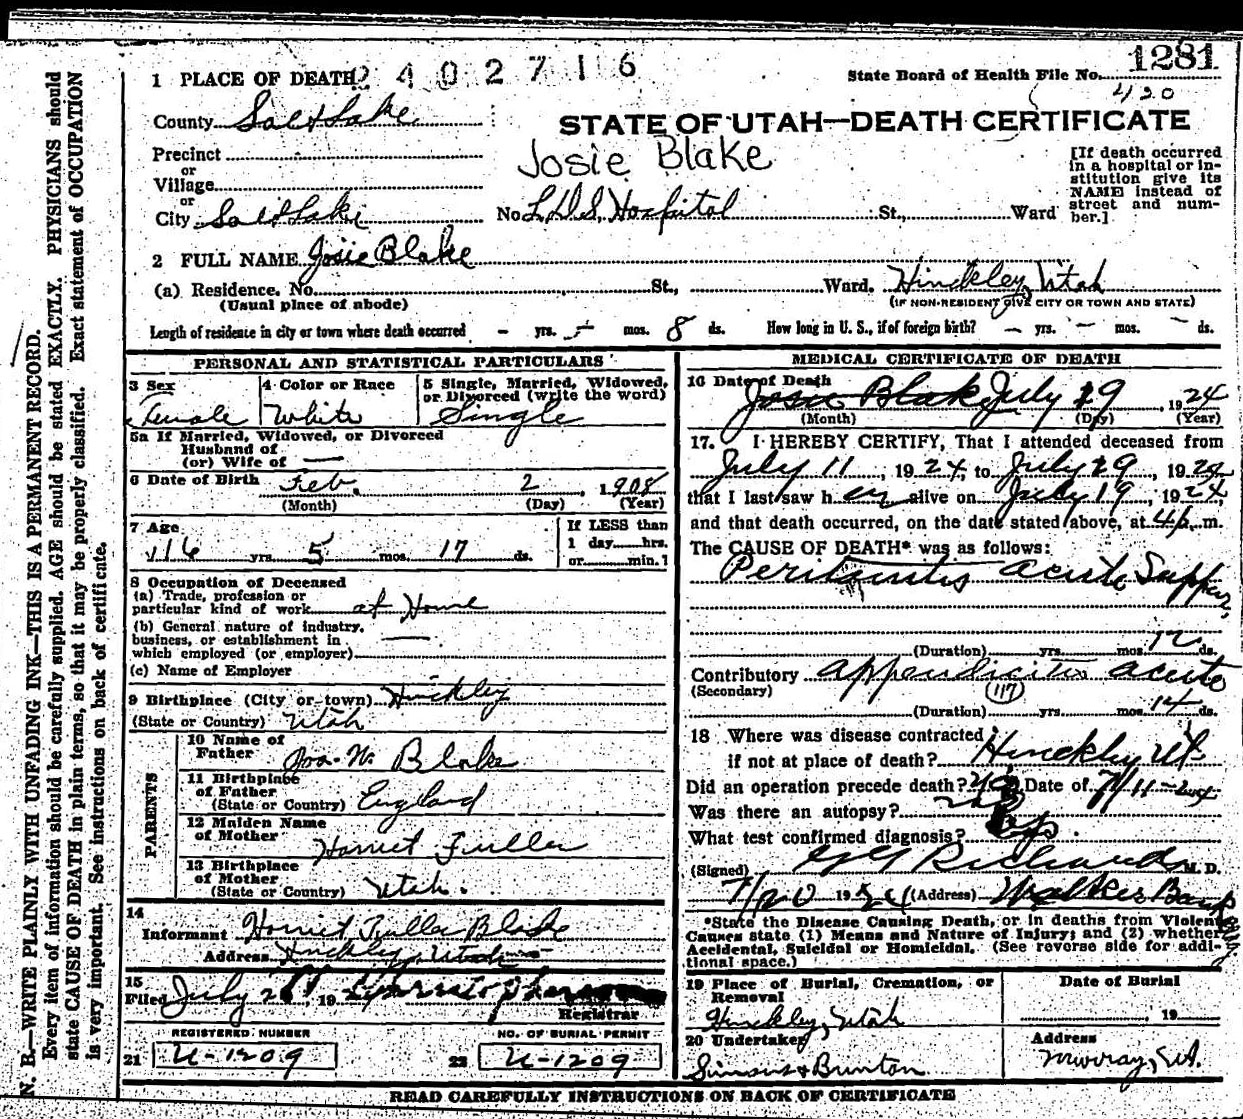 1281
1 PLACE OF DEATH 2402716
State Board of Health File No.
420
County Salt Lake
STATE OF UTAH—DEATH CERTIFICATE
Precinct
Josie Blake
or
Village
or
City Salt Lake
No. L.D.S. Hospital St., Ward
[If death occurred
in a hospital or in-
stitution give its
NAME instead of
street and num-
ber.]
2 FULL NAME Josie Blake
(a) Residence. No. St., Ward. Hinckley, Utah
(Usual place of abode)
(IF NON-RESIDENT GIVE CITY OR TOWN AND STATE)
Length of residence in city or town where death occurred - yrs. - mos. 8 ds. How long in U. S., if of foreign birth? - yrs. - mos. - ds.
PERSONAL AND STATISTICAL PARTICULARS
3 Sex
Female
4 Color or Race
White
5 Single, Married, Widowed,
or Divorced (write the word)
Single
5a If Married, Widowed, or Divorced
Husband of
(or) Wife of —
6 Date of Birth Feb. 2, 1908
(Month) (Day) (Year)
7 Age
16 yrs. 5 mos. 17 ds.
If LESS than
1 day hrs.
or min.
8 Occupation of Deceased
(a) Trade, profession or
particular kind of work at Home
(b) General nature of industry,
business, or establishment in
which employed (or employer) —
(c) Name of Employer
9 Birthplace (City or town) Hinckley
(State or Country) Utah
PARENTS
10 Name of
Father W. Blake
11 Birthplace
of Father
(State or Country) England
12 Maiden Name
of Mother Harriet Fuller
13 Birthplace
of Mother
(State or Country) Utah.
14
Informant Harriet Fuller Blake
Address Hinckley, Utah
15
Filed July 19
Registrar
REGISTERED NUMBER
21 U-1209
NO. OF BURIAL PERMIT
22 U-1209
MEDICAL CERTIFICATE OF DEATH
16 Date of Death
Josie Blake July 19 1924
(Month) (Day) (Year)
17. I HEREBY CERTIFY, That I attended deceased from
July 11, 1924, to July 19, 1924
that I last saw her alive on July 19, 1924,
and that death occurred, on the date stated above, at m.
The CAUSE OF DEATH* was as follows:
Peritonitis acute Suppur,
(Duration) yrs. mos. 12 ds.
Contributory appendicitis acute
(Secondary)
(117)
(Duration) yrs. mos. 14 ds.
18 Where was disease contracted
if not at place of death? Hinckley Ut
Did an operation precede death? Date of 7/11-24
Was there an autopsy?
What test confirmed diagnosis?
(Signed) G G Richards M. D.
7/20 1924 (Address) Walker Bank
*State the Disease Causing Death, or in deaths from Violent
Causes state (1) Means and Nature of Injury; and (2) whether
Accidental, Suicidal or Homicidal. (See reverse side for addi-
tional space.)
19 Place of Burial, Cremation, or
Removal
Hinckley, Utah
Date of Burial
19
20 Undertaker
Simons & Brunton
Address
Murray, Ut.
READ CAREFULLY INSTRUCTIONS ON BACK OF CERTIFICATE
N. B.—WRITE PLAINLY WITH UNFADING INK—THIS IS A PERMANENT RECORD.
Every item of information should be carefully supplied. AGE should be stated EXACTLY. PHYSICIANS should
state CAUSE OF DEATH in plain terms, so that it may be properly classified. Exact statement of OCCUPATION
is very important. See instructions on back of certificate.